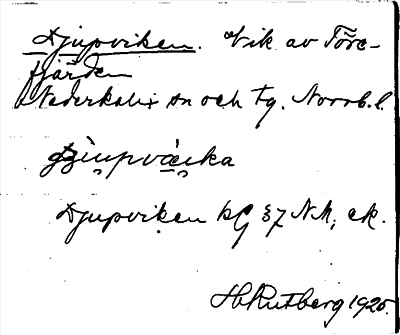 Djupviken. Vik av Töre-
fjärden
Nederkalix sn och tg. Norrb. l.
Djupviken kG 37 N.M., ek.
H. Rutberg 1920.